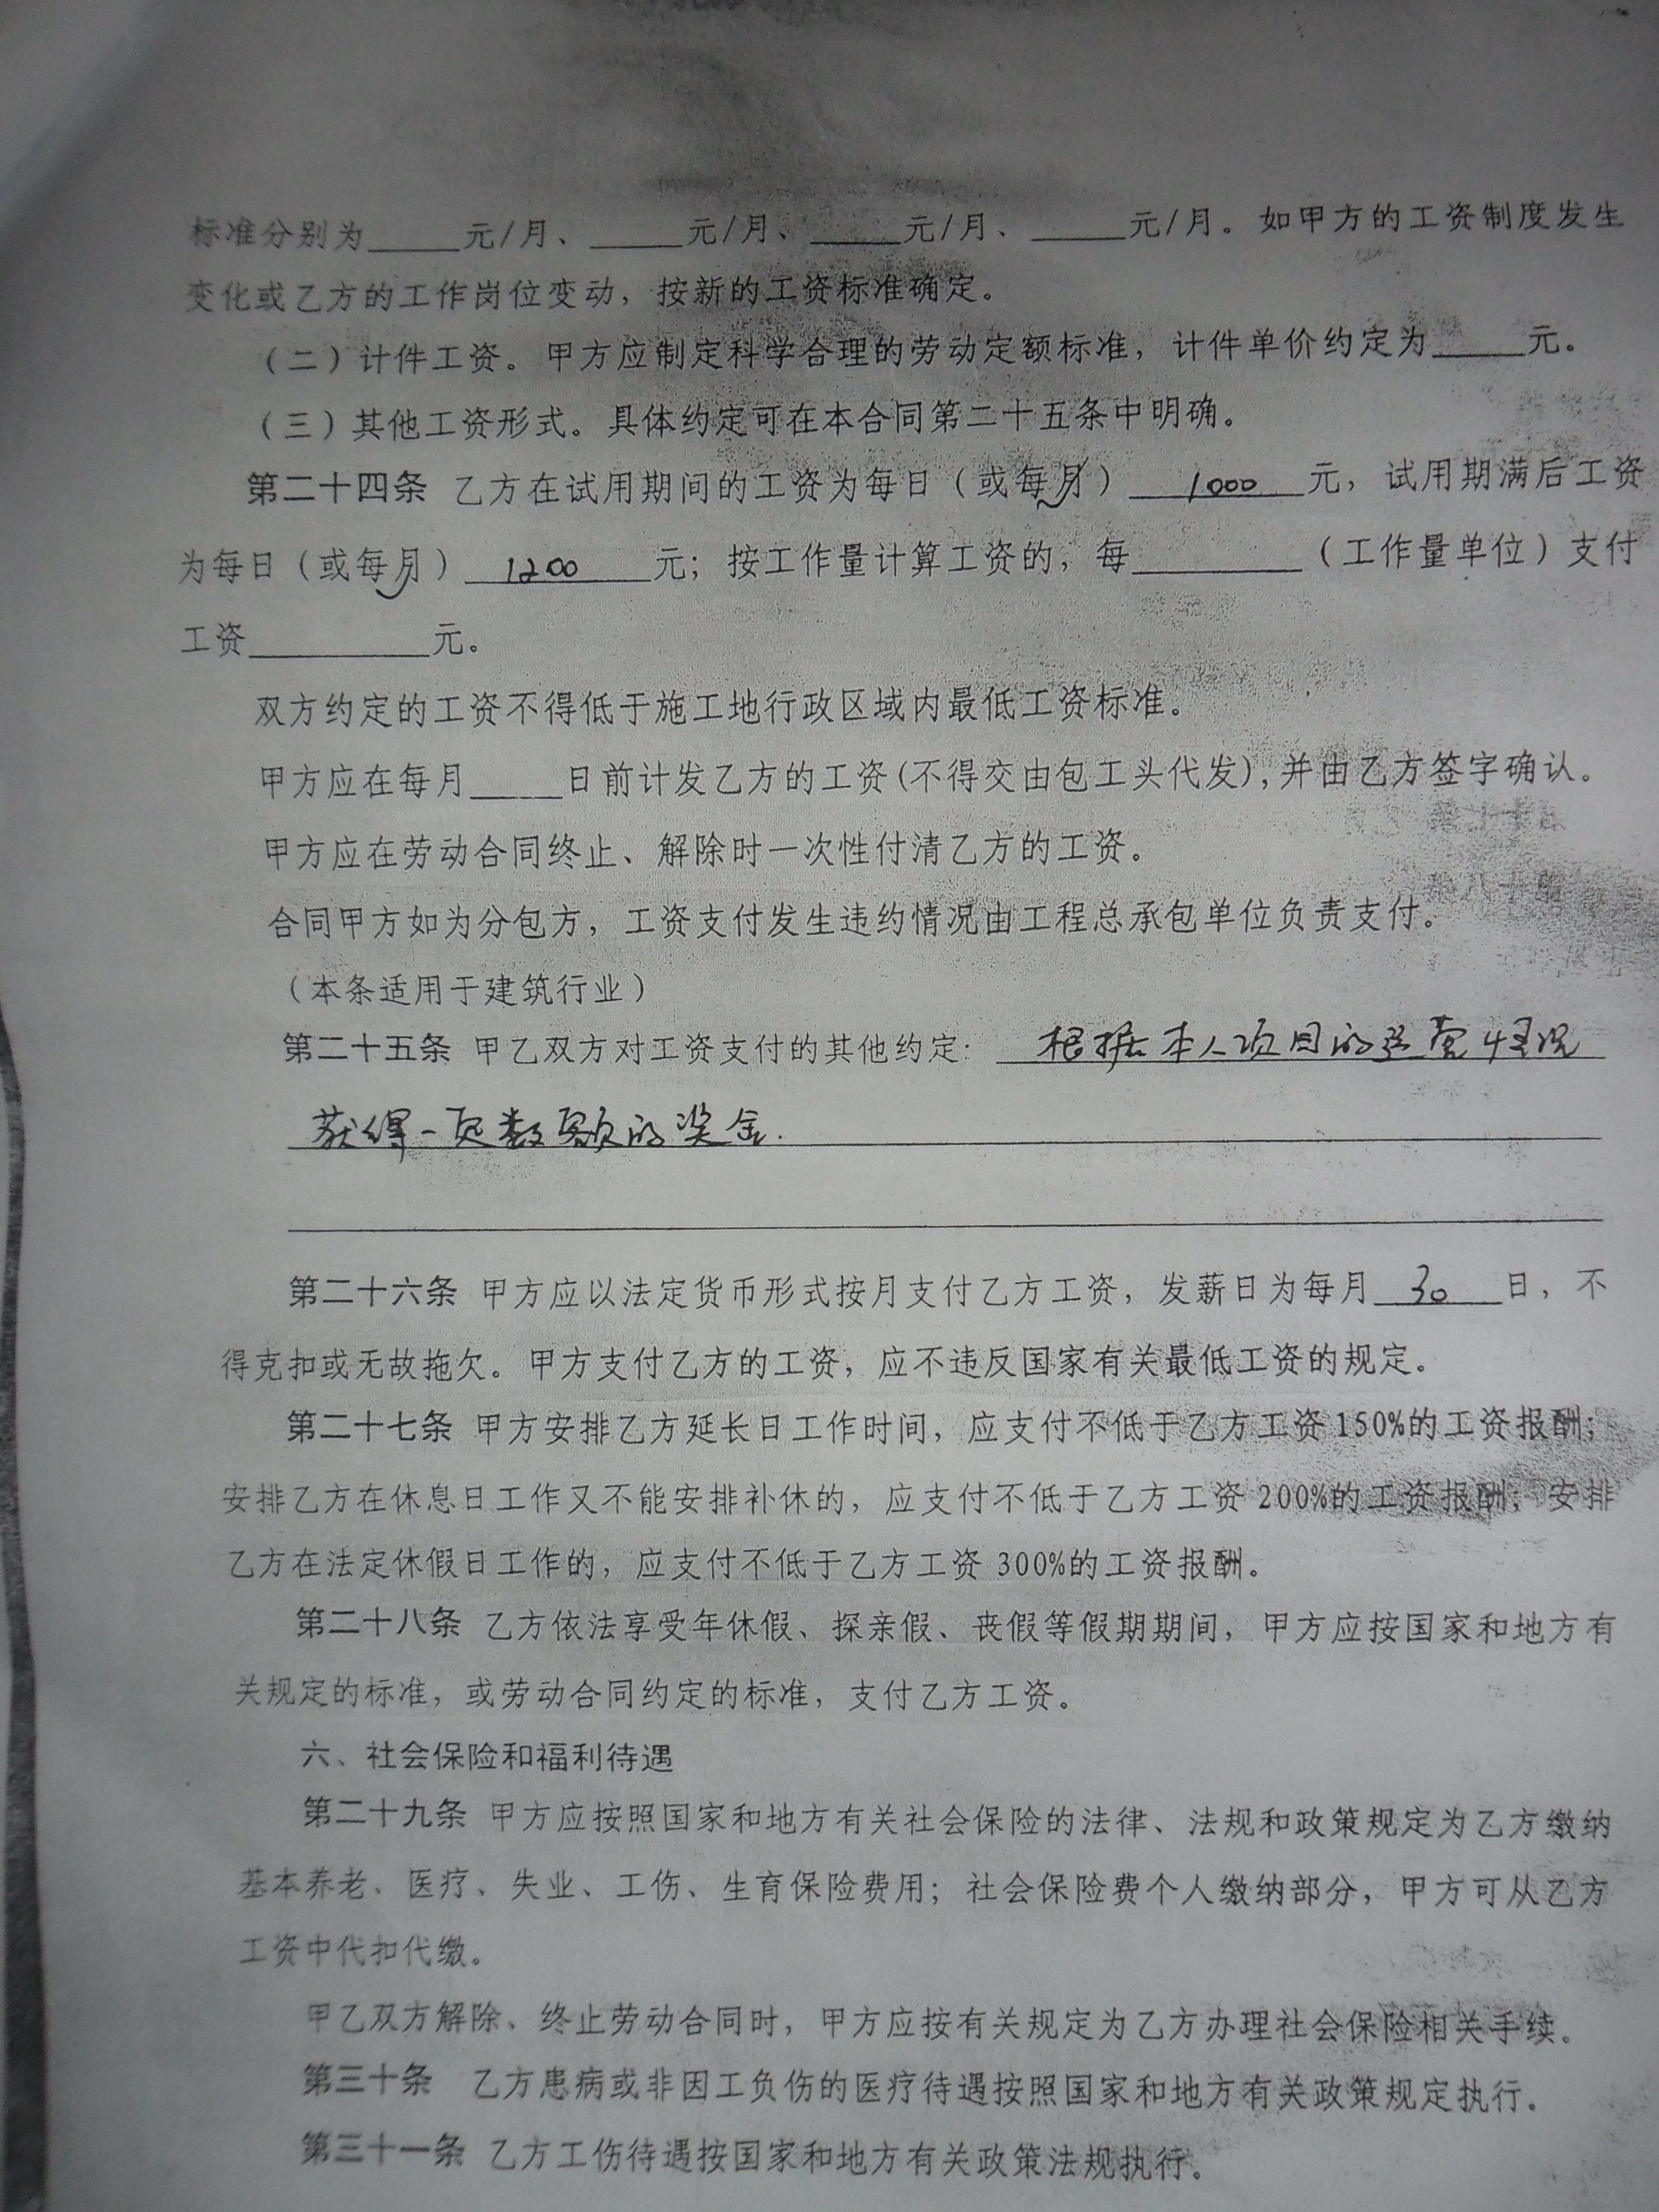 标准分别为_____元/月、_____元/月、_____元/月、_____元/月。如甲方的工资制度发生
变化或乙方的工作岗位变动，按新的工资标准确定。
（二）计件工资。甲方应制定科学合理的劳动定额标准，计件单价约定为_____元。
（三）其他工资形式。具体约定可在本合同第二十五条中明确。
第二十四条 乙方在试用期间的工资为每日（或每月）1000元，试用期满后工资
为每日（或每月）1200元；按工作量计算工资的，每_________（工作量单位）支付
工资__________元。
双方约定的工资不得低于施工地行政区域内最低工资标准。
甲方应在每月_____日前计发乙方的工资(不得交由包工头代发)，并由乙方签字确认。
甲方应在劳动合同终止、解除时一次性付清乙方的工资。
合同甲方如为分包方，工资支付发生违约情况由工程总承包单位负责支付。
（本条适用于建筑行业）
第二十五条 甲乙双方对工资支付的其他约定：根据本人项目的运营情况
获得一定数额的奖金.
第二十六条 甲方应以法定货币形式按月支付乙方工资，发薪日为每月30日，不
得克扣或无故拖欠。甲方支付乙方的工资，应不违反国家有关最低工资的规定。
第二十七条 甲方安排乙方延长日工作时间，应支付不低于乙方工资150%的工资报酬；
安排乙方在休息日工作又不能安排补休的，应支付不低于乙方工资200%的工资报酬；安排
乙方在法定休假日工作的，应支付不低于乙方工资300%的工资报酬。
第二十八条 乙方依法享受年休假、探亲假、丧假等假期期间，甲方应按国家和地方有
关规定的标准，或劳动合同约定的标准，支付乙方工资。
六、社会保险和福利待遇
第二十九条 甲方应按照国家和地方有关社会保险的法律、法规和政策规定为乙方缴纳
基本养老、医疗、失业、工伤、生育保险费用；社会保险费个人缴纳部分，甲方可从乙方
工资中代扣代缴。
甲乙双方解除、终止劳动合同时，甲方应按有关规定为乙方办理社会保险相关手续。
第三十条 乙方患病或非因工负伤的医疗待遇按照国家和地方有关政策规定执行。
第三十一条 乙方工伤待遇按国家和地方有关政策法规执行。